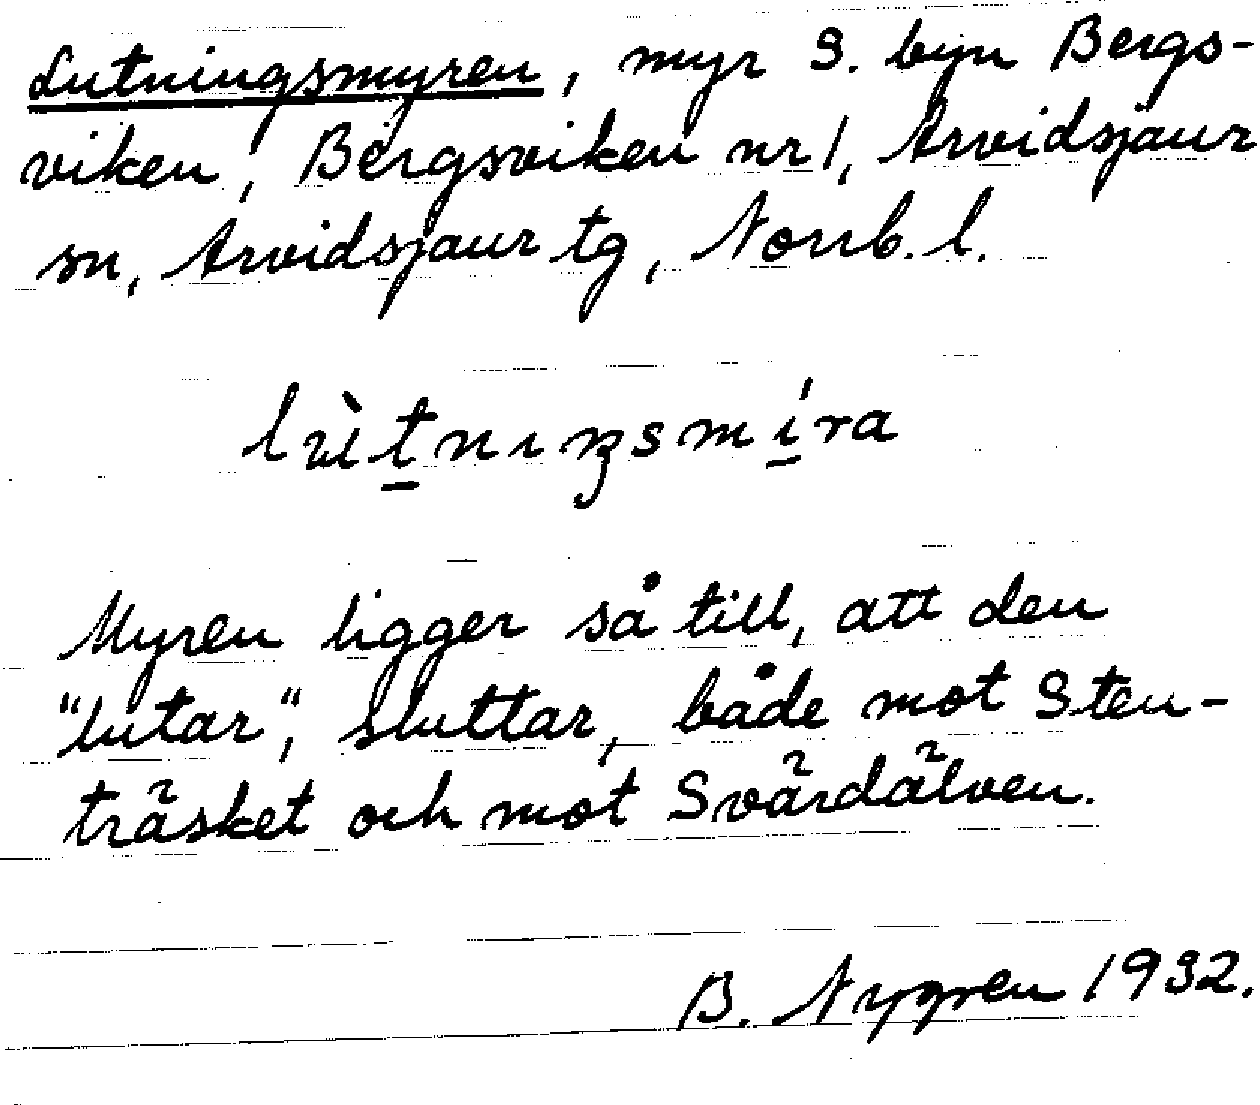 Lutningsmyren, myr S. byn Bergs-
viken, Bergsviken nr 1, Arvidsjaur
sn, Arvidsjaur tg, Norrb. l.
Myren ligger så till, att den
"lutar", sluttar, både mot Sten-
träsket och mot Svärdälven.
B. Nygren 1932.